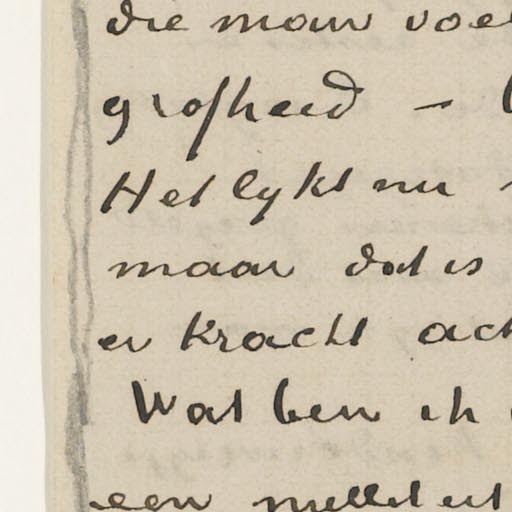 die mouw voe
grofheid –
Het lykt nu
maar dat is
er kracht ach
Wat ben ik
een nulliteit